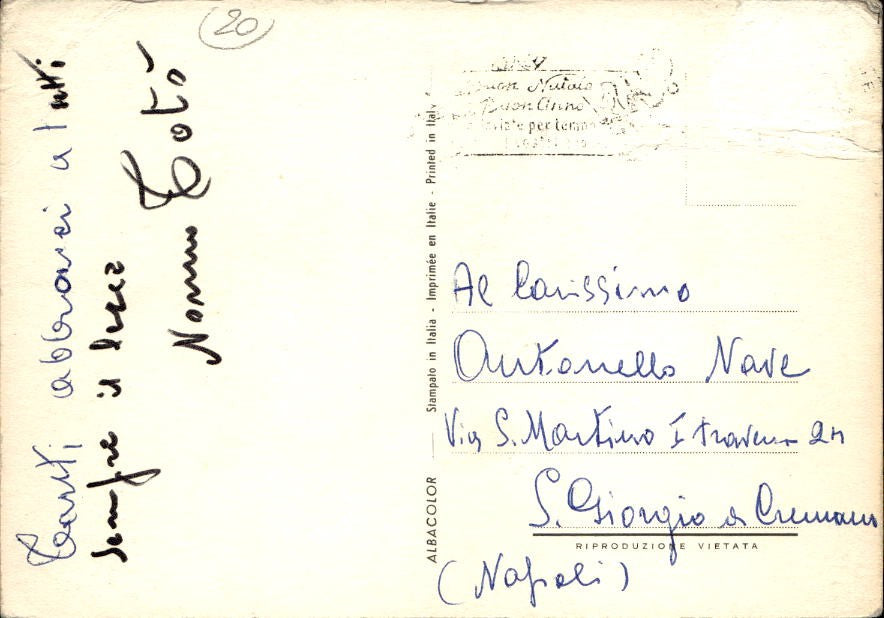 20
Tanti abbracci a tutti
sempre il
Nonno Totò
Buon Natale
Buon Anno
per tempo
Stampato in Italia - Imprimée en Italie - Printed in Italy
ALBACOLOR
Al Carissimo
Antonello Nave
Via S. Martino I traversa 24
S. Giorgio a Cremano
RIPRODUZIONE VIETATA
(Napoli)